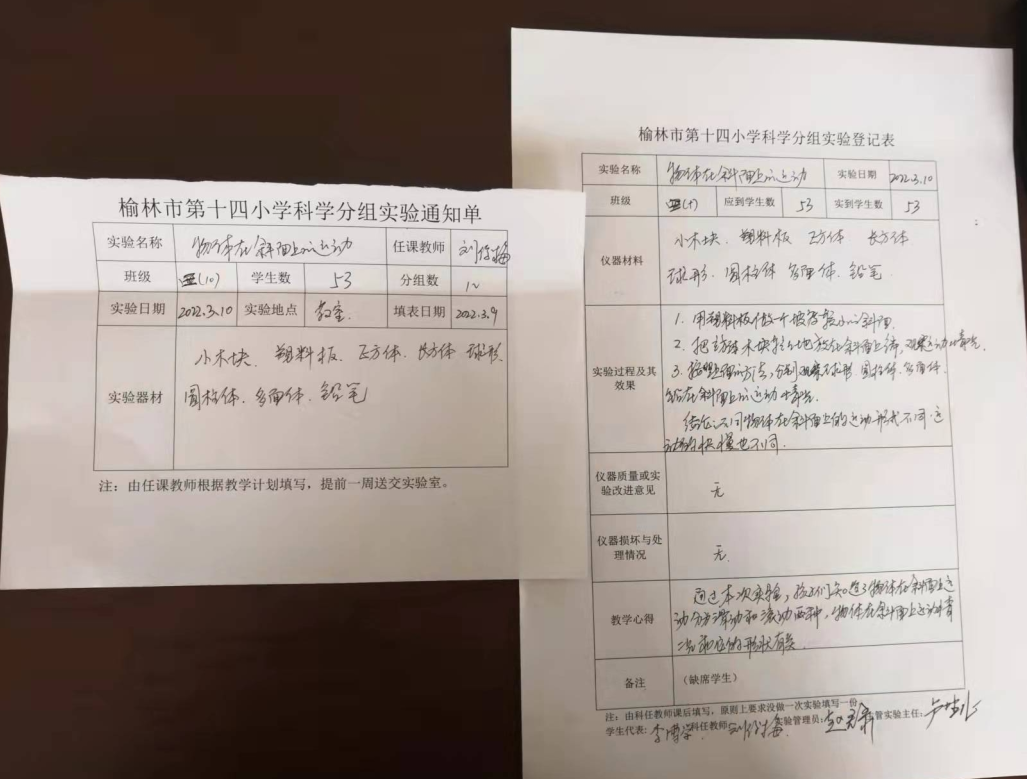 榆林市第十四小学科学分组实验通知单
实验名称 物体在斜面上的运动 任课教师
班级 三(10) 学生数 53 分组数 12
实验日期 2022.3.10 实验地点 教室. 填表日期 2022.3.9
实验器材
小木块、塑料板、正方体、长方体 球形
圆柱体、多面体、铅笔
注：由任课教师根据教学计划填写，提前一周送交实验室。
榆林市第十四小学科学分组实验登记表
实验名称 物体在斜面上的运动 实验日期 2022.3.10
班级 三(十) 应到学生数 53 实到学生数 53
仪器材料
小木块、塑料板 正方体 长方体
球形、圆柱体 多面体、铅笔
实验过程及其
效果
1. 用塑料板做一个坡度较小的斜面.
2. 把木块轻轻地放在斜面上端,观察运动的情况.
3. 按照上面的方法,分别观察球形.圆柱体.多面体.
铅在斜面上的运动情况.
结论:不同物体在斜面上的运动形式不同.运
动的快慢也不同.
仪器质量或实
验改进意见
无
仪器损坏与处
理情况
无.
教学心得
通过本次实验,孩子们知道了物体在斜面上运
动分为滑动和滚动两种,物体在斜面上运动情
况和它的形状有关.
备注 （缺席学生）
注：由科任教师课后填写，原则上要求没做一次实验填写一份。
学生代表: 科任教师: 实验管理员: 管实验主任: